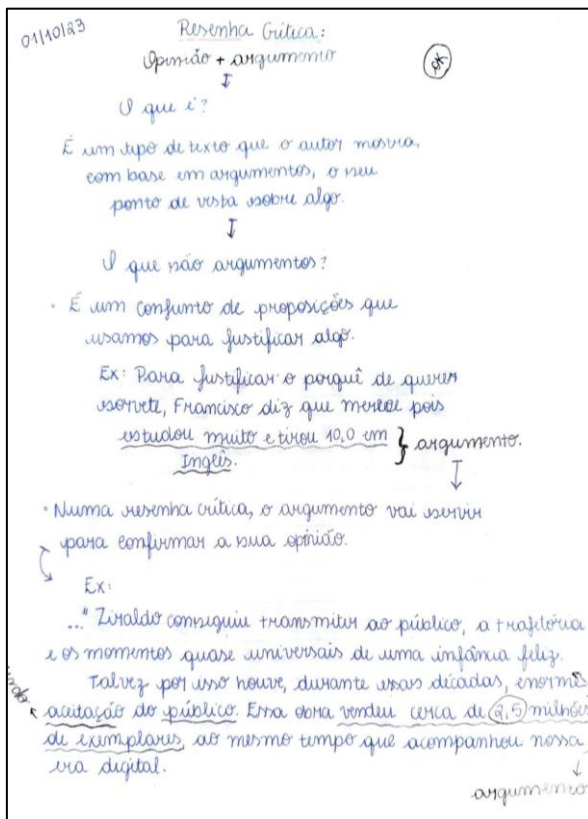 01/10/23
Resenha Crítica:
Opinião + argumento
OK
O que é?
É um tipo de texto que o autor mostra,
com base em argumentos, o seu
ponto de vista sobre algo.
O que são argumentos?
• É um conjunto de proposições que
usamos para justificar algo.
Ex: Para justificar o porquê de querer
sorvete, Francisco diz que merece pois
estudou muito e tirou 10,0 em } argumento.
Inglês.
• Numa resenha crítica, o argumento vai servir
para confirmar a sua opinião.
Ex:
..." Ziraldo conseguiu transmitir ao público, a trajetória
e os momentos quase universais de uma infância feliz.
Talvez por isso houve, durante essas décadas, enorme
aceitação do público. Essa obra vendeu cerca de 2,5 milhões
de exemplares, ao mesmo tempo que acompanhou nossa
era digital.
argumento